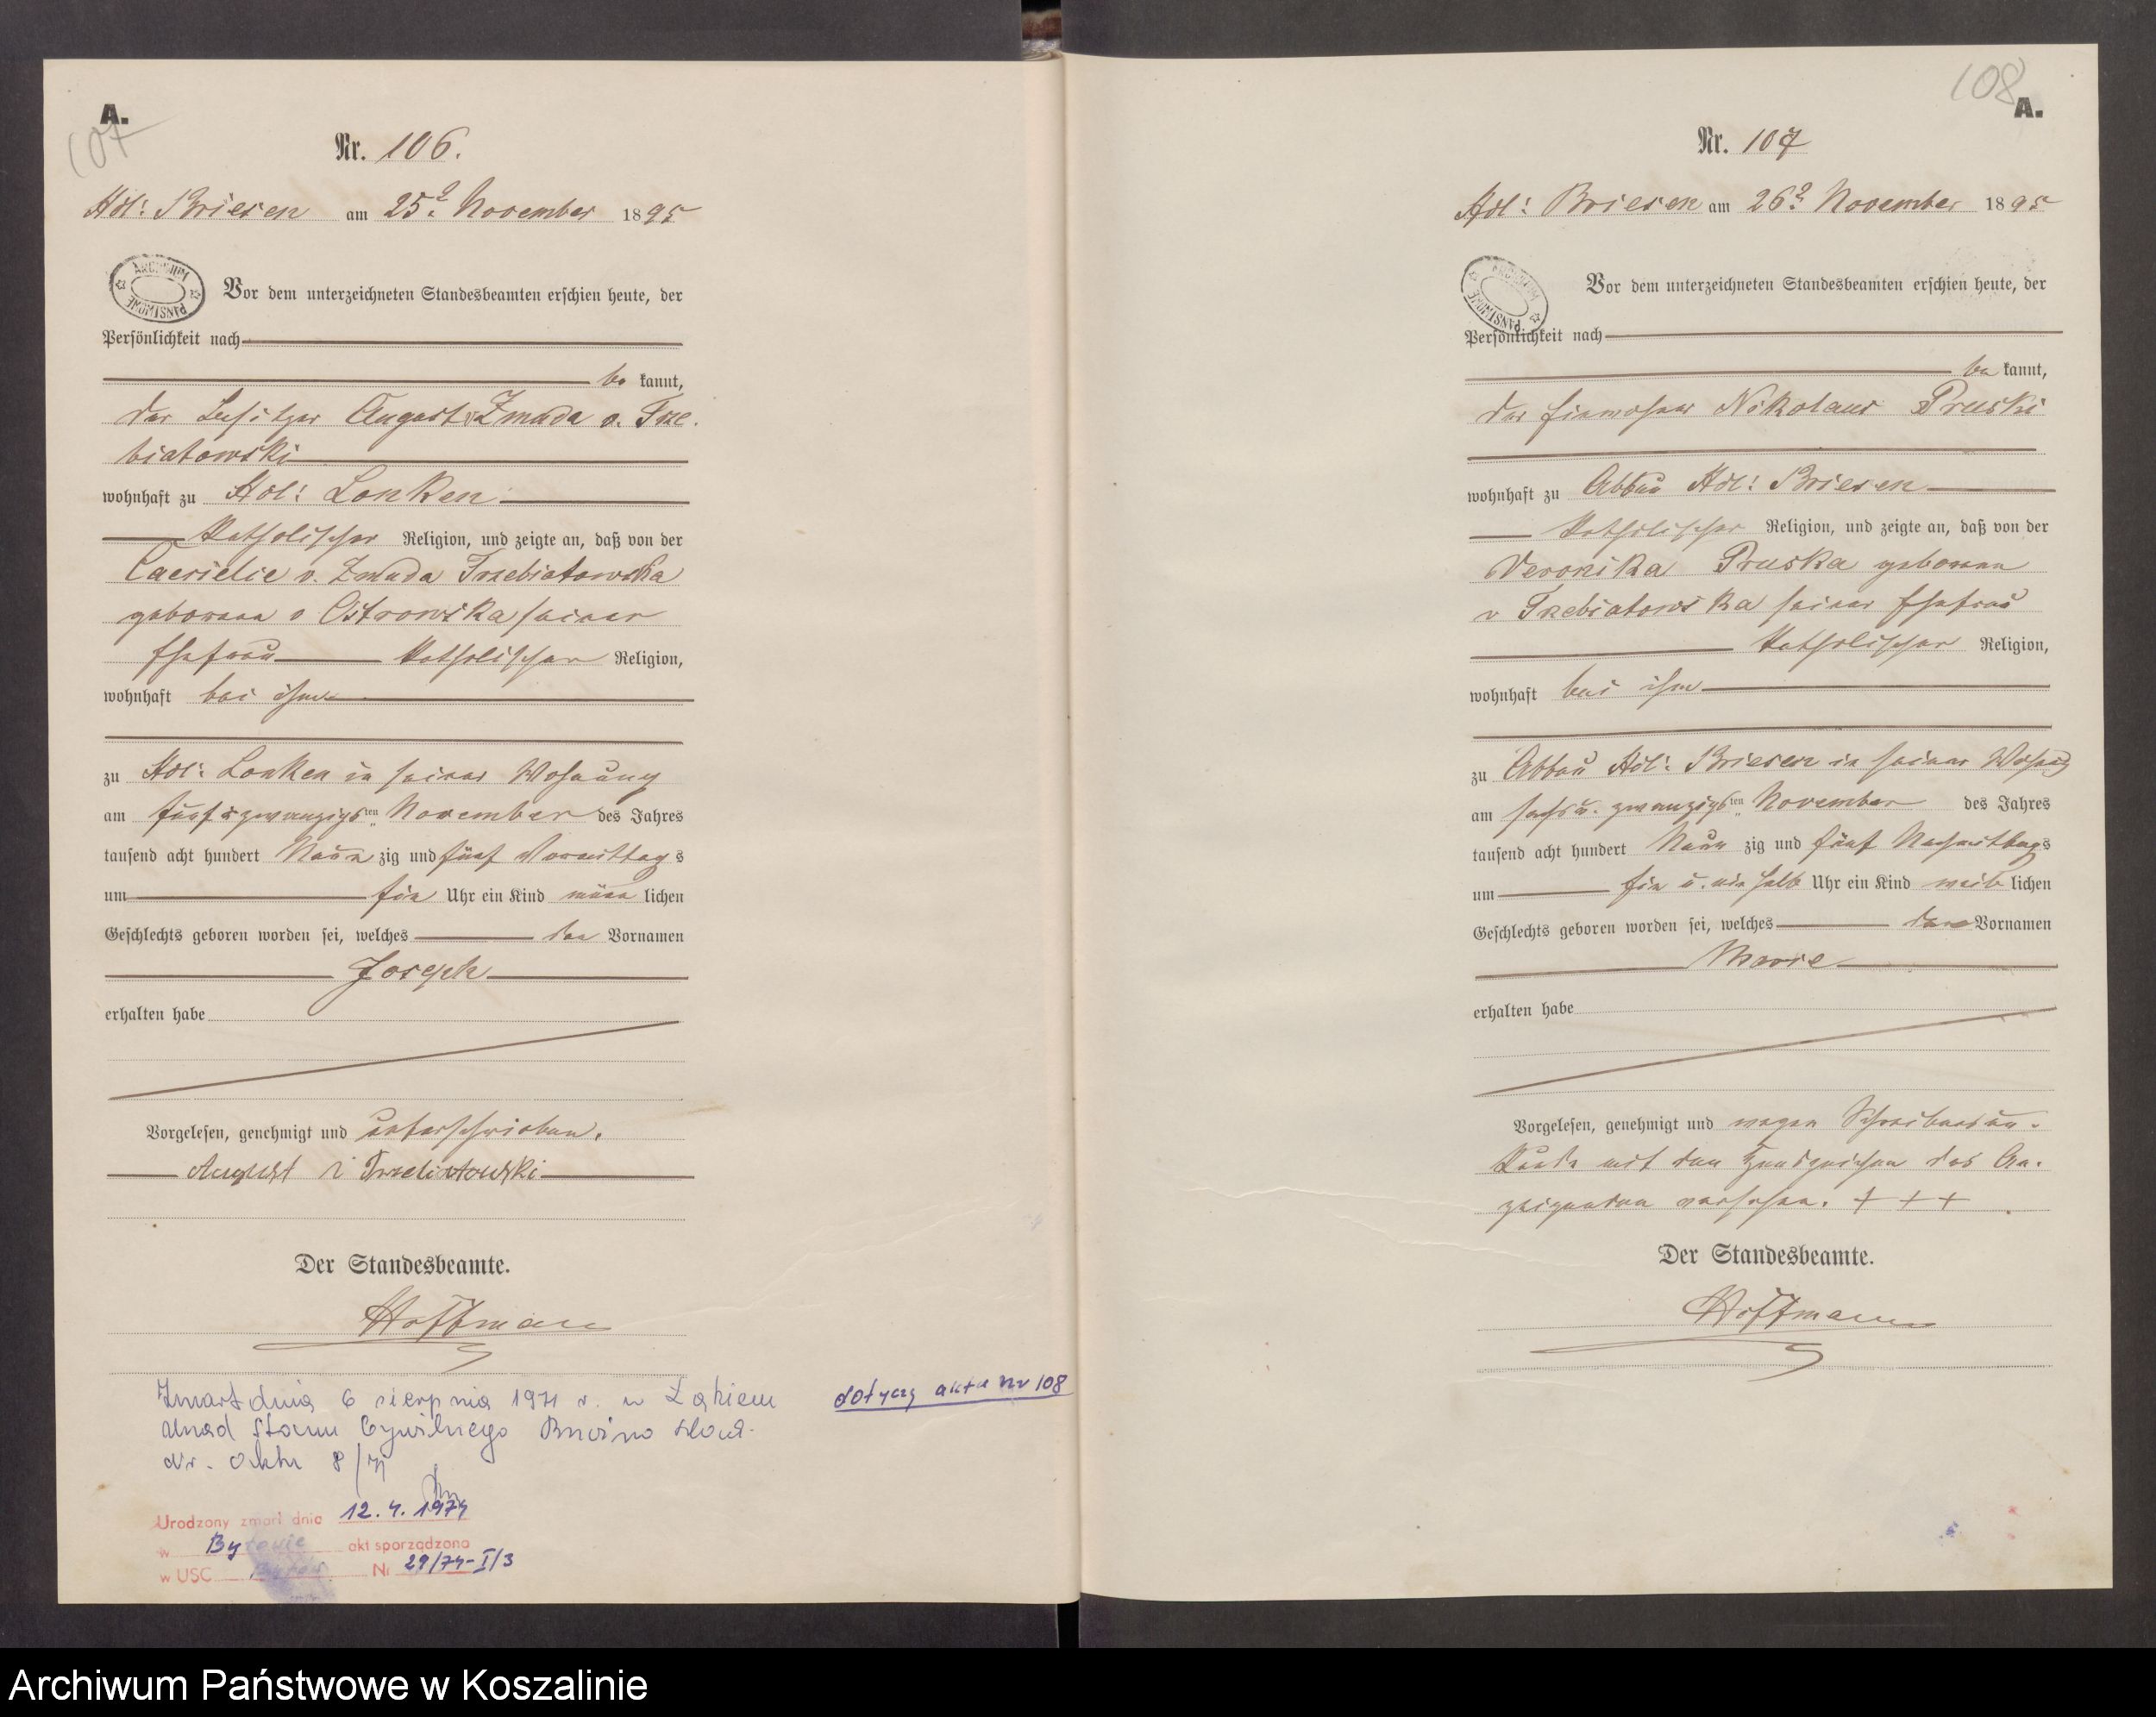 A.
107
Nr. 106.
Adl: Briesen am 25ᵗ November 1895
ARCHIWUM PAŃSTWOWE
Vor dem unterzeichneten Standesbeamten erschien heute, der
Persönlichkeit nach
be kannt,
der Besitzer August v Zmuda v. Trze-
biatowski
wohnhaft zu Adl: Lonken
Katholischer Religion, und zeigte an, daß von der
v. Zmuda Trzebiatowska
geborene v Ostrowska seiner
Ehefrau Katholischer Religion,
wohnhaft bei ihm
zu Adl: Lonken in seiner Wohnung
am fünf u zwanzigsten November des Jahres
tausend acht hundert Neun zig und fünf Vormittags
um Ein Uhr ein Kind männ lichen
Geschlechts geboren worden sei, welches den Vornamen
Joseph
erhalten habe
Vorgelesen, genehmigt und unterschrieben.
August v Trzebiatowski
Der Standesbeamte.
Hoffmann
Zmarł dnia 6 sierpnia 1971 r. w Łąkiem
Urząd Stanu Cywilnego
Nr. aktu 8/71
dotyczy aktu nr 108
Urodzony zmarł dnia 12.4.1974
w Bytowie akt sporządzono
w USC Bytów Nr 29/74-I/3
108
A.
Nr. 107
Adl: Briesen am 26ᵗ November 1895
ARCHIWUM PAŃSTWOWE
Vor dem unterzeichneten Standesbeamten erschien heute, der
Persönlichkeit nach
be kannt,
der Nikolaus Pruski
wohnhaft zu Abbau Adl: Briesen
Katholischer Religion, und zeigte an, daß von der
Veronika Pruska geborene
v Trzebiatowska seiner Ehefrau
Katholischer Religion,
wohnhaft bei ihm
zu Abbau Adl: Briesen in seiner Wohng
am sechs u. zwanzigsten November des Jahres
tausend acht hundert Neun zig und fünf Nachmittags
um Ein u. ein halb Uhr ein Kind weib lichen
Geschlechts geboren worden sei, welches den Vornamen
Marie
erhalten habe
Vorgelesen, genehmigt und wegen Schreibensun-
kunde mit den Handzeichen des An-
zeigenden versehen. + + +
Der Standesbeamte.
Hoffmann
Archiwum Państwowe w Koszalinie